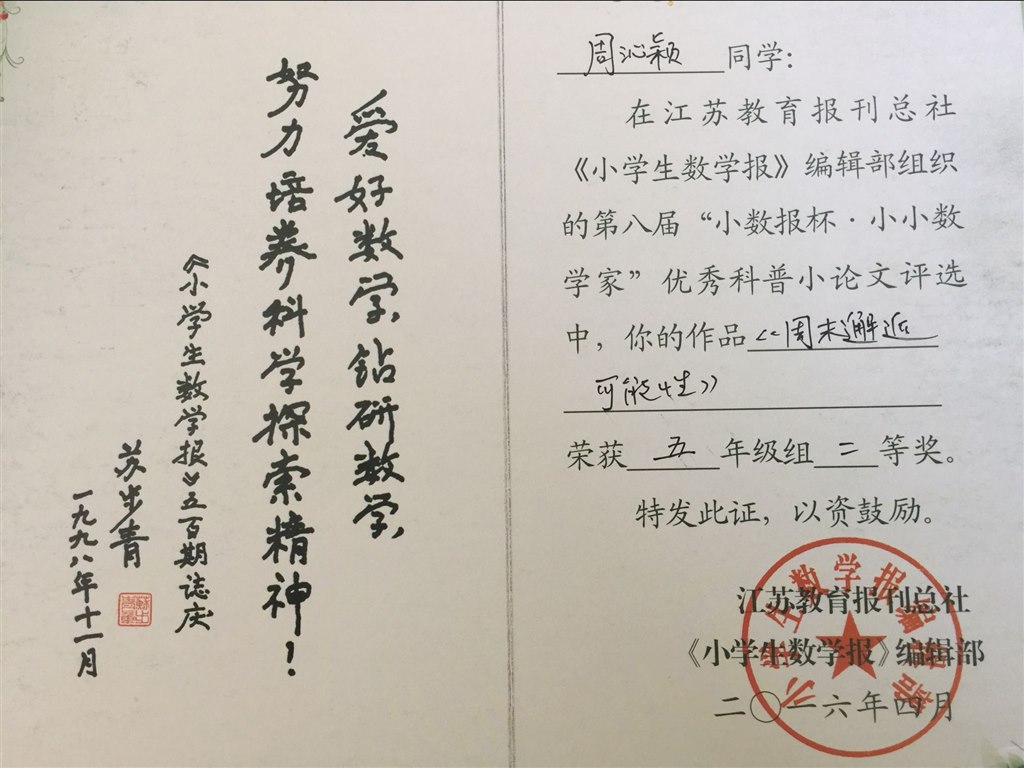 爱好数学，钻研数学，
努力培养科学探索精神！
《小学生数学报》五百期誌庆
苏步青
一九九八年十一月
周沁颖同学：
在江苏教育报刊总社
《小学生数学报》编辑部组织
的第八届“小数报杯·小小数
学家”优秀科普小论文评选
中，你的作品《周末邂逅
可能性》
荣获五年级组二等奖。
特发此证，以资鼓励。
江苏教育报刊总社
《小学生数学报》编辑部
二〇一六年四月
小学生数学报编辑部